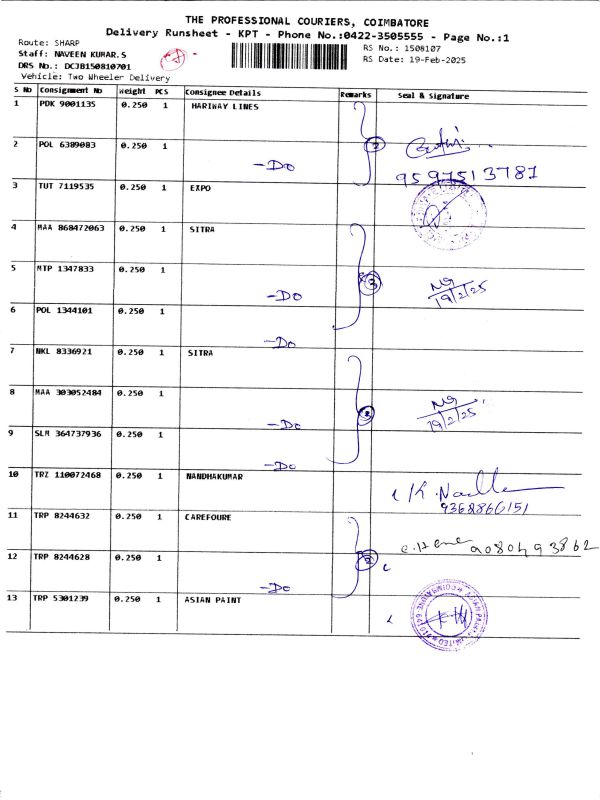 THE PROFESSIONAL COURIERS, COIMBATORE
Delivery Runsheet - KPT - Phone No.:0422-3505555 - Page No.:1
Route: SHARP
RS No.: 1508107
Staff: NAVEEN KUMAR.S
RS Date: 19-Feb-2025
DRS No.: DCJB150810701
Vehicle: Two Wheeler Delivery
S No Consignment No Weight PCS Consignee Details Remarks Seal & Signature
1 PDK 9001135 0.250 1 HARIWAY LINES
2 POL 6389083 0.250 1 -Do
9597513781
3 TUT 7119535 0.250 1 EXPO
4 MAA 868472063 0.250 1 SITRA
5 MTP 1347833 0.250 1 -Do 3 NG
19/2/25
6 POL 1344101 0.250 1 -Do
7 NKL 8336921 0.250 1 SITRA
8 MAA 303052484 0.250 1 -Do NG
19/2/25
9 SLM 364737936 0.250 1 -Do
10 TRZ 110072468 0.250 1 NANDHAKUMAR
9368866151
11 TRP 8244632 0.250 1 CAREFOURE
9080493862
12 TRP 8244628 0.250 1 -Do 2
13 TRP 5301239 0.250 1 ASIAN PAINT